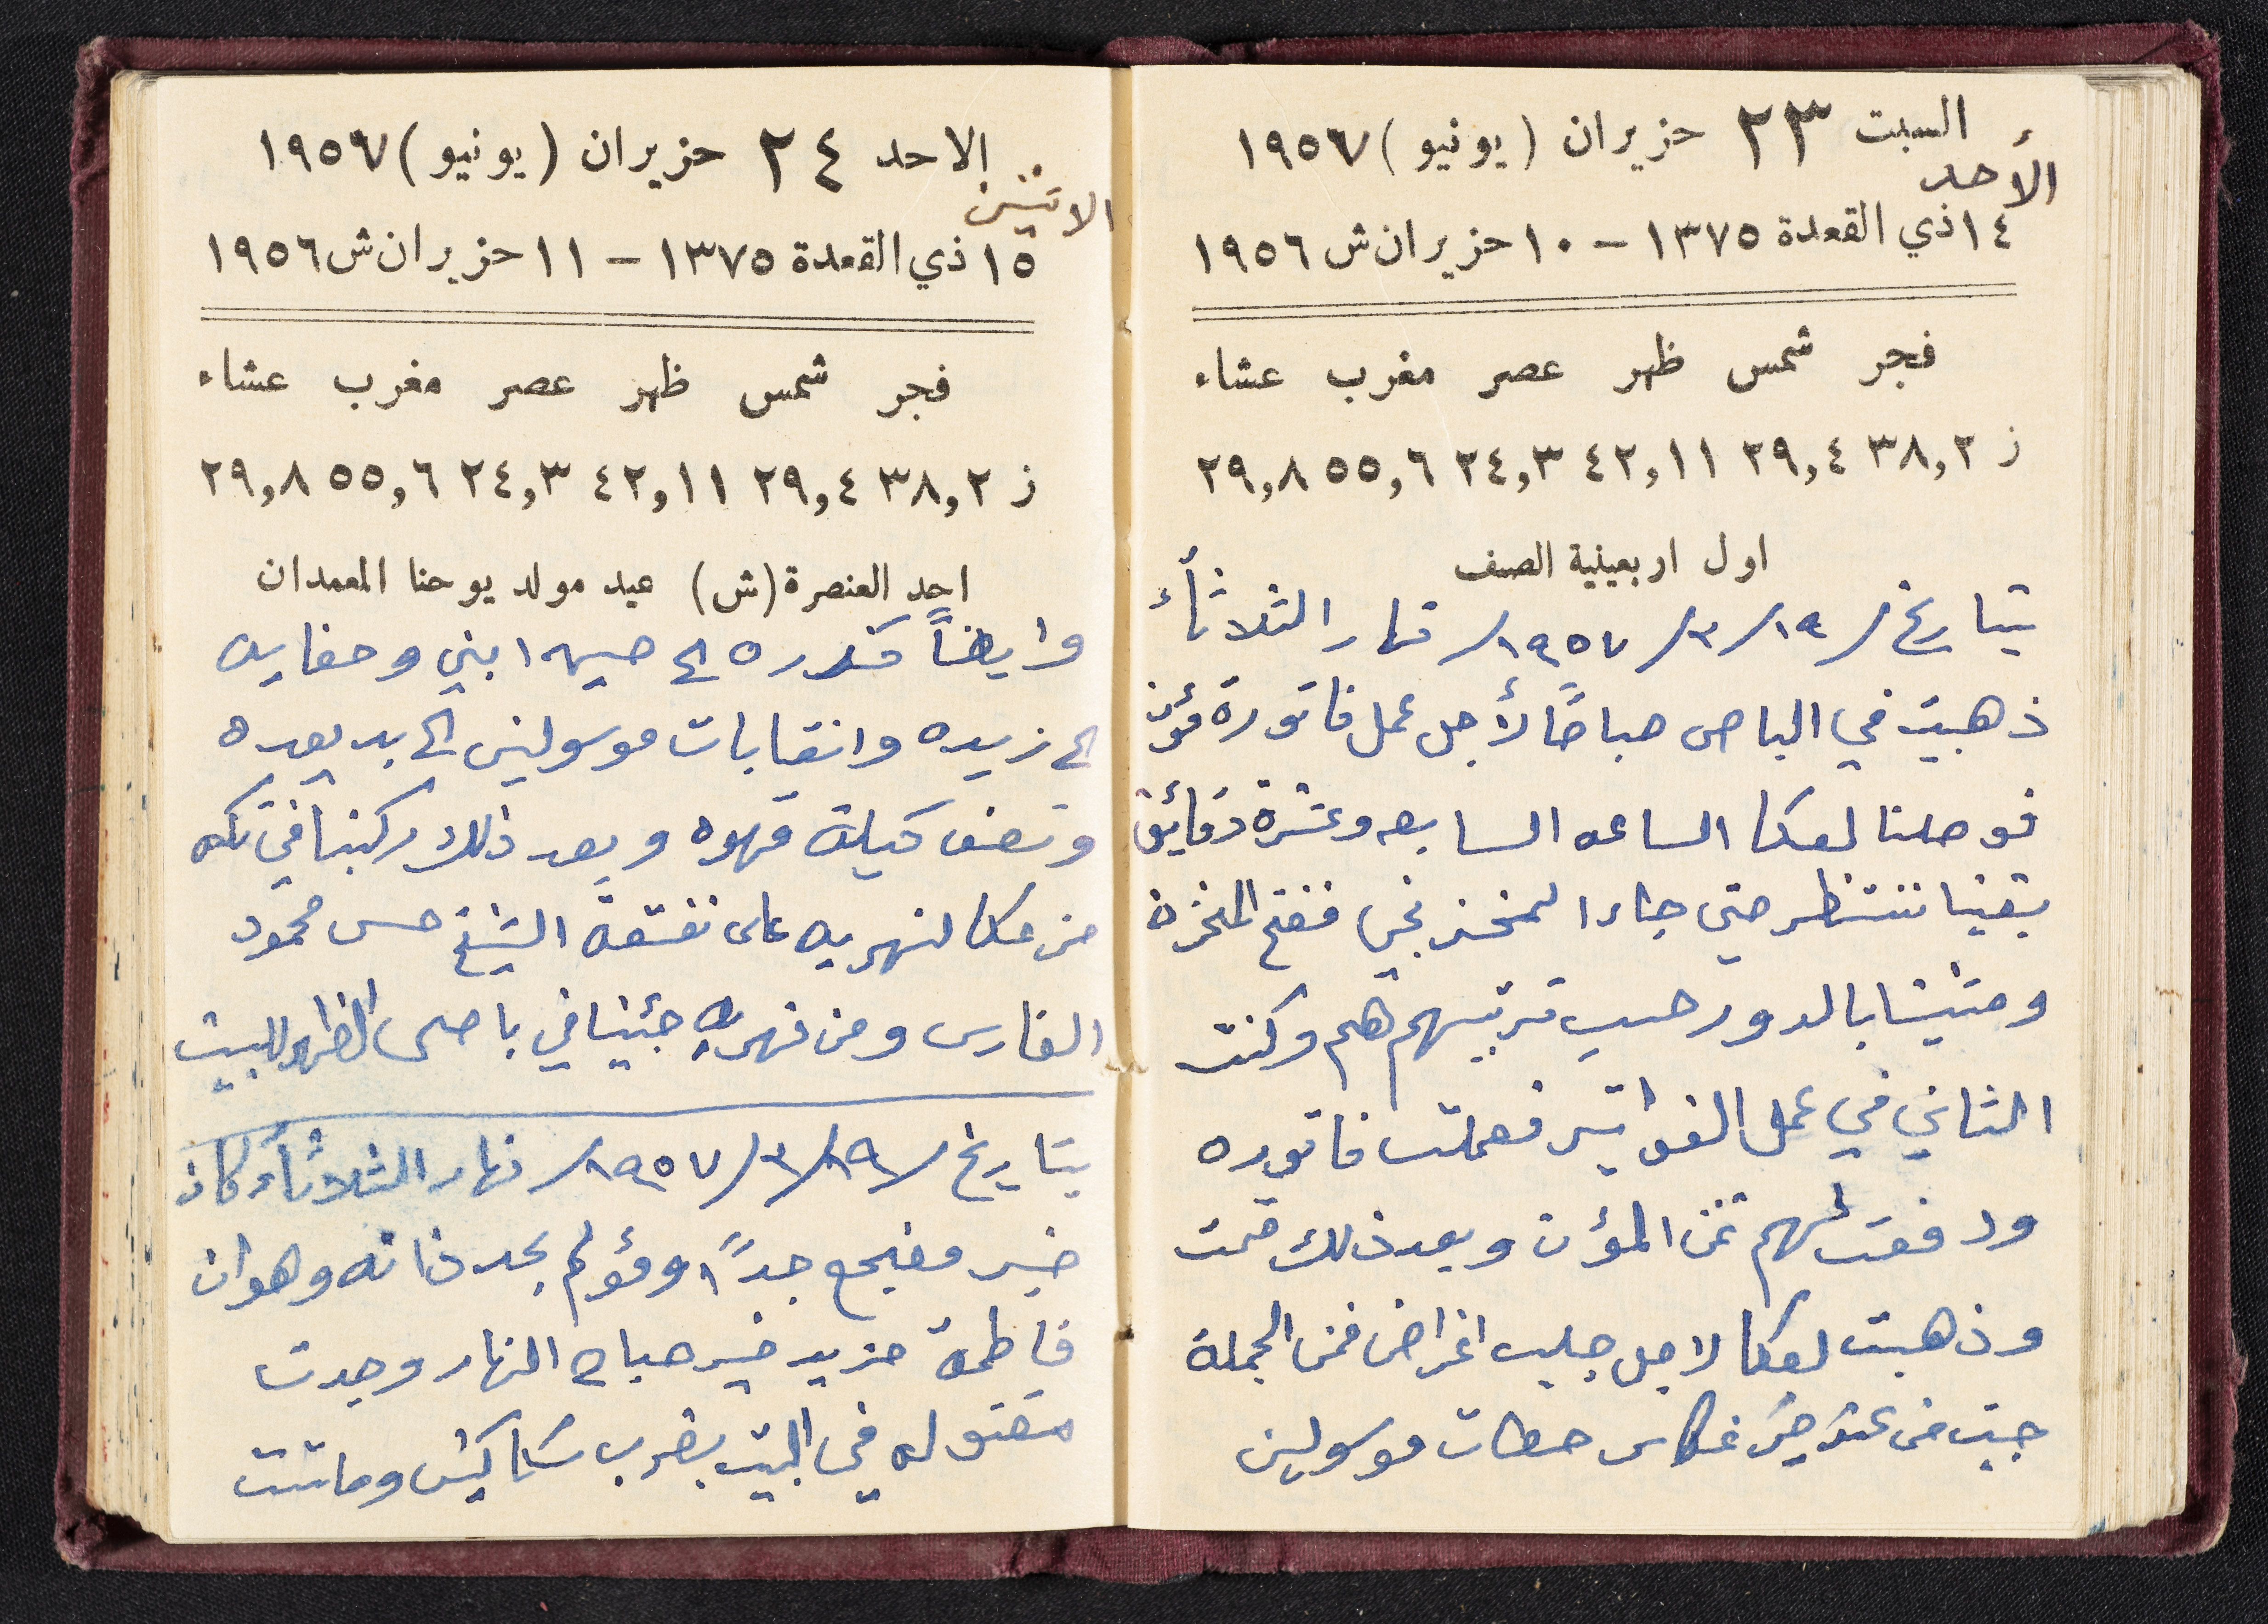 السبت ٢٣ حزيران (يونيو) ١٩٥٧
الأحد
١٤ ذي القعدة ١٣٧٥ – ١٠ حزيران ش ١٩٥٦
فجر شمس ظهر عصر مغرب عشاء
ز ٣٨,٢ ٢٩,٤ ٤٢,١١ ٢٤,٣ ٥٥,٦ ٢٩,٨
اول اربعينية الصيف
بتاريخ /١٩/٣/١٩٥٧/ نهار الثلاثأ
ذهبت في الباص صباحًا لأجل عمل فاتورة مؤن
فوصلنا لعكا الساعه السابعه وعشرة دقايق
بقينا ننتظر حتى جاء المخزنجي ففتح المخزن
ومشينا بالدور حسب ترتيبهم هم وكنت
الثاني في عمل الفواتير فعملت فاتوره
ودفعت لهم ثمن المؤن وبعد ذلك قمت
وذهبت لعكا لاجل جلب اغراض فمن الجملة
جبت من عند حطات موسولين
الاحد ٢٤ حزيران (يونيو) ١٩٥٧
الاثنين
١٥ ذي القعدة ١٣٧٥ – ١١ حزيران ش ١٩٥٦
فجر شمس ظهر عصر مغرب عشاء
ز ٣٨,٢ ٢٩,٤ ٤٢,١١ ٢٤,٣ ٥٥,٦ ٢٩,٨
احد العنصرة (ش) عيد مولد يوحنا المعمدان
وايضاً كندره الى ابني وحفايه
الى زيده وانقابات موسولين الى بديعده
ونصف كيلة قهوه وبعد ذلك ركبنا في تكسه
من عكا لنهريه على نفقة الشيخ حسن محمود
الفارس ومن نهريه جئينا في باص الظهر للبيت
بتاريخ /١٩/٣/١٩٥٧/ نهار الثلاثأ كان
خبر مفجع جداً ومؤلم بحد ذاته وهو ان
فاطمة مزيد خير صباح النهار وجدت
مقتوله في البيت بضرب سكاكين وماتت